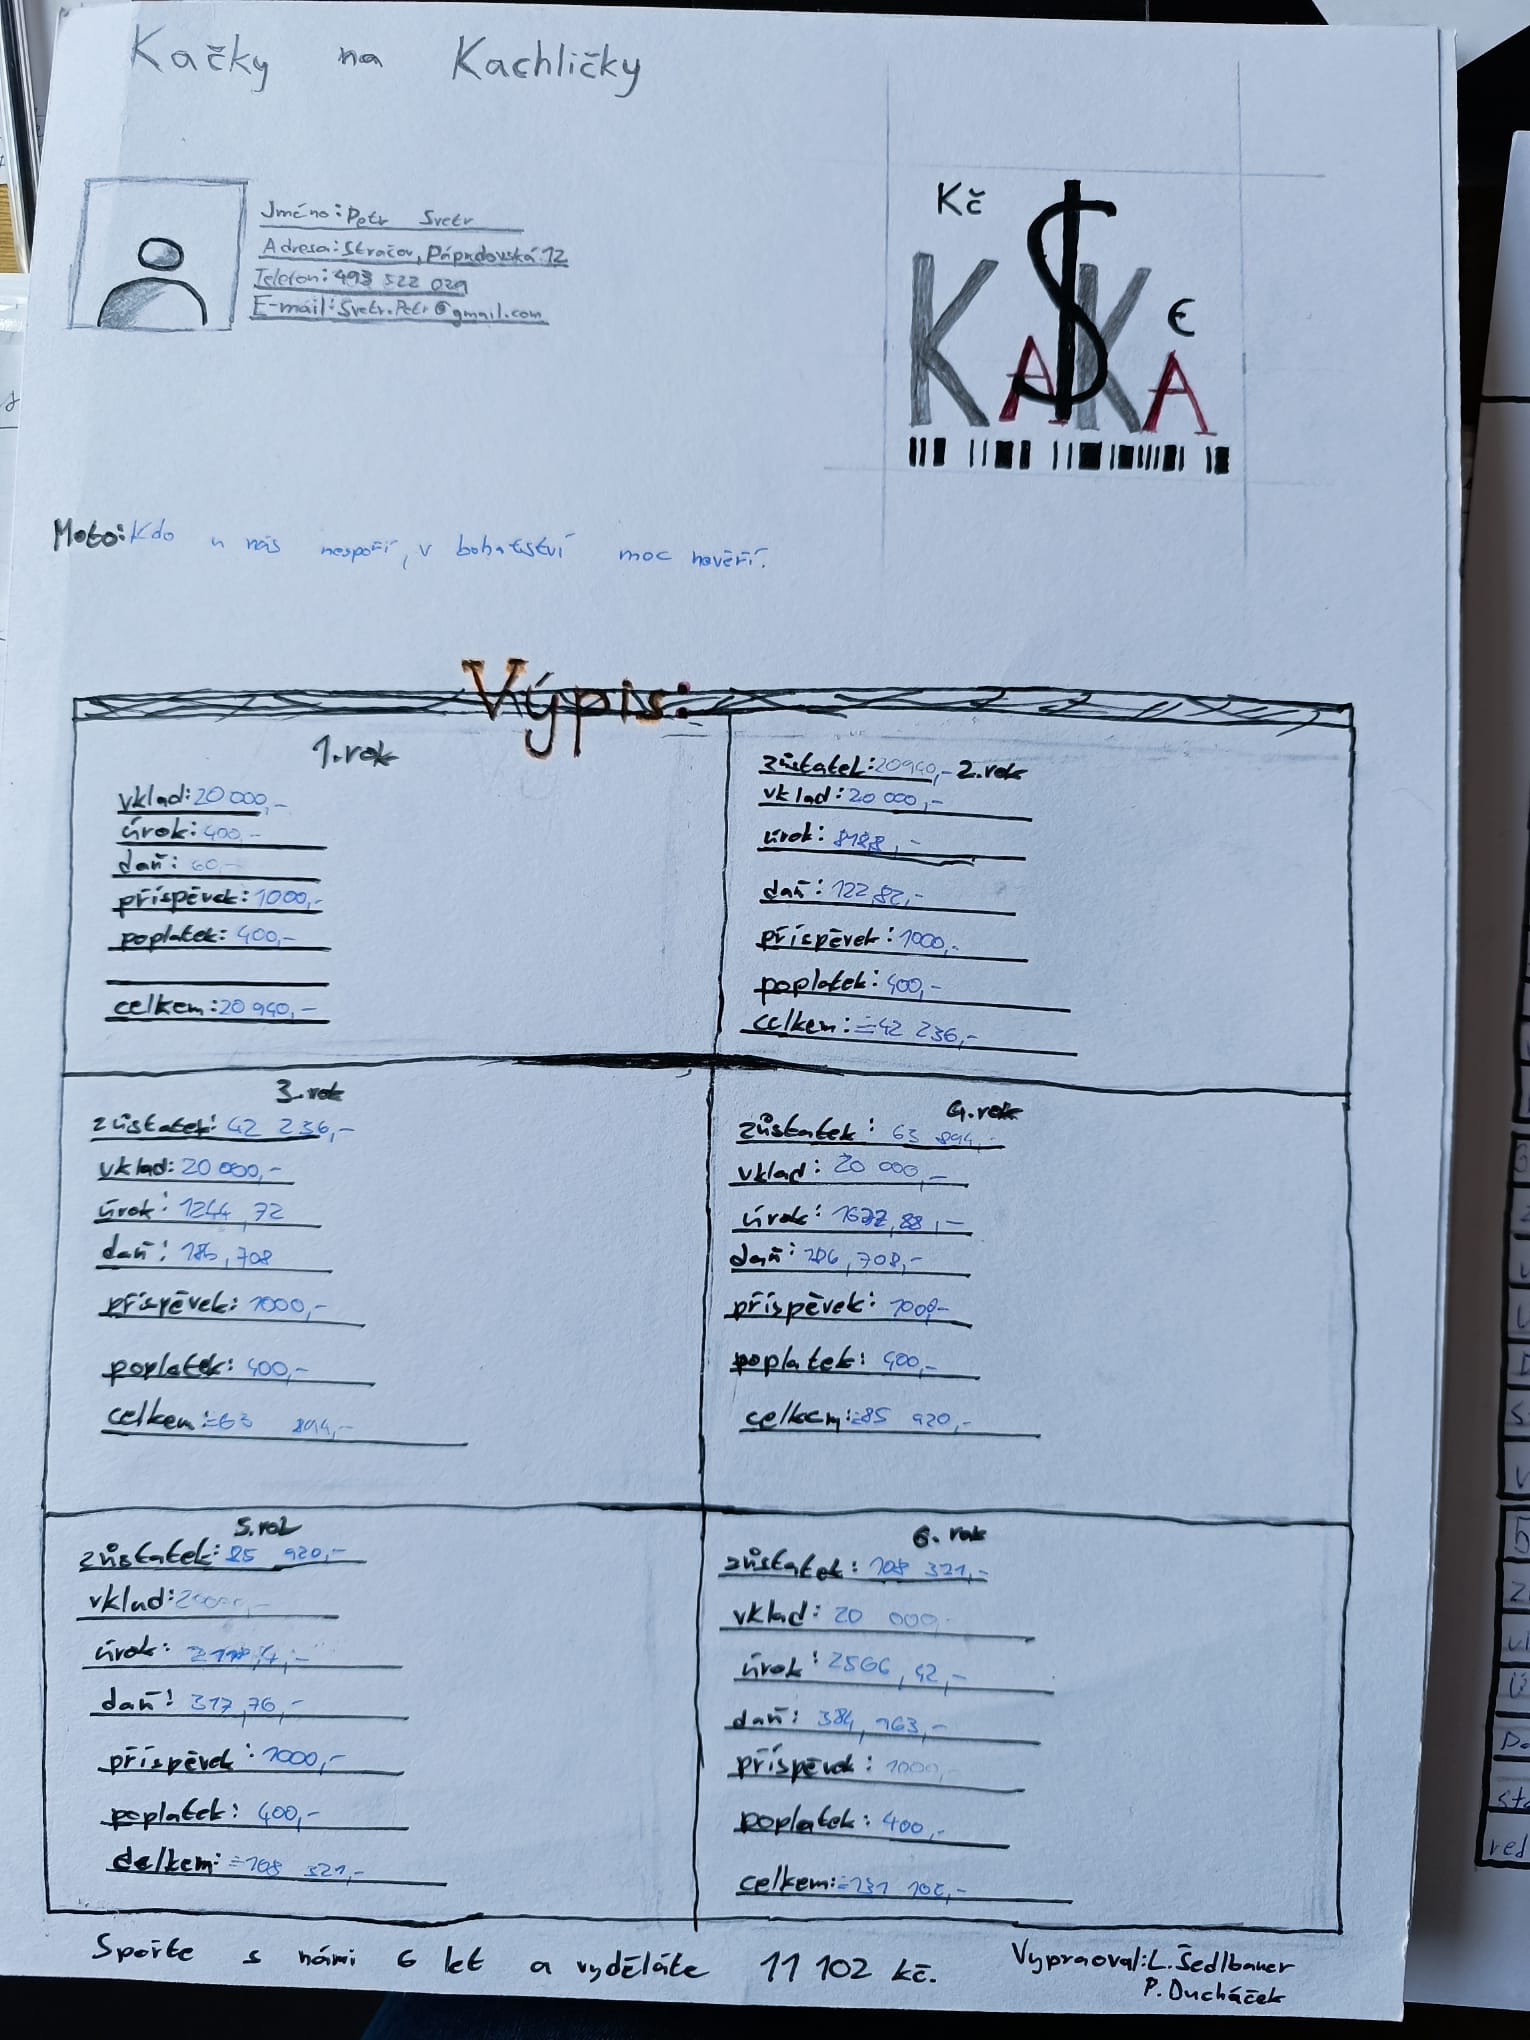 Kačky na Kachličky
Jméno: Petr Svetr
Adresa: Stračov, Páprdovská 12
Telefon: 493 522 029
E-mail: Svetr.Petr@gmail.com
Kč
KAKA
$
€
Moto: Kdo u nás nespoří, v bohatství moc nevěří.
Výpis:
1. rok
vklad: 20 000,-
úrok: 400,-
daň: 60,-
příspěvek: 1000,-
poplatek: 400,-
celkem: 20 940,-
zůstatek: 20940,- 2. rok
vklad: 20 000,-
úrok:
daň: 122,82,-
příspěvek: 1000,-
poplatek: 400,-
celkem: = 42 236,-
3. rok
zůstatek: 42 236,-
vklad: 20 000,-
úrok: 1244,72
daň: 186,708
příspěvek: 1000,-
poplatek: 400,-
celkem: = 63 894,-
4. rok
zůstatek: 63 894,-
vklad: 20 000,-
úrok: 1677,88,-
daň:
příspěvek: 1000,-
poplatek: 400,-
celkem: = 85 920,-
5. rok
zůstatek: 85 920,-
vklad: 20000,-
úrok:
daň: 317,76,-
příspěvek: 1000,-
poplatek: 400,-
celkem: = 108 321,-
6. rok
zůstatek: 108 321,-
vklad: 20 000,-
úrok: 2566,42,-
daň: 384,963,-
příspěvek: 1000,-
poplatek: 400,-
celkem: = 131 102,-
Spořte s námi 6 let a vyděláte 11 102 kč.
Vypraoval: L. Šedlbauer
P. Ducháček